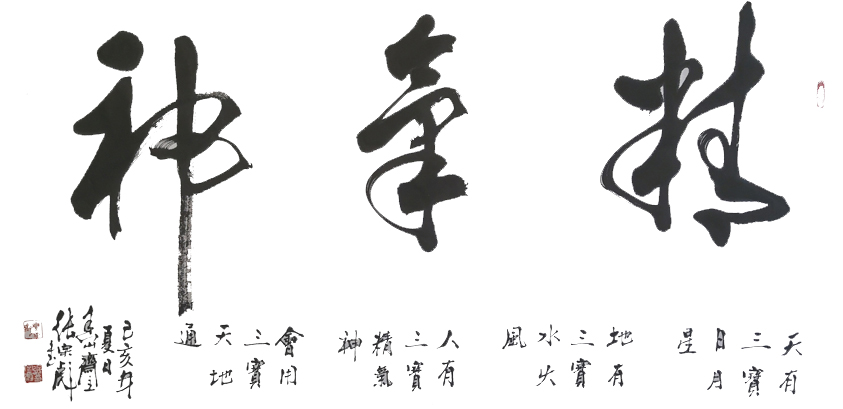 精氣神
天有
三寶
日月
星
地有
三寶
水火
風
人有
三寶
精氣
神
會用
三寶
天地
通
己亥年
夏日
山齋主